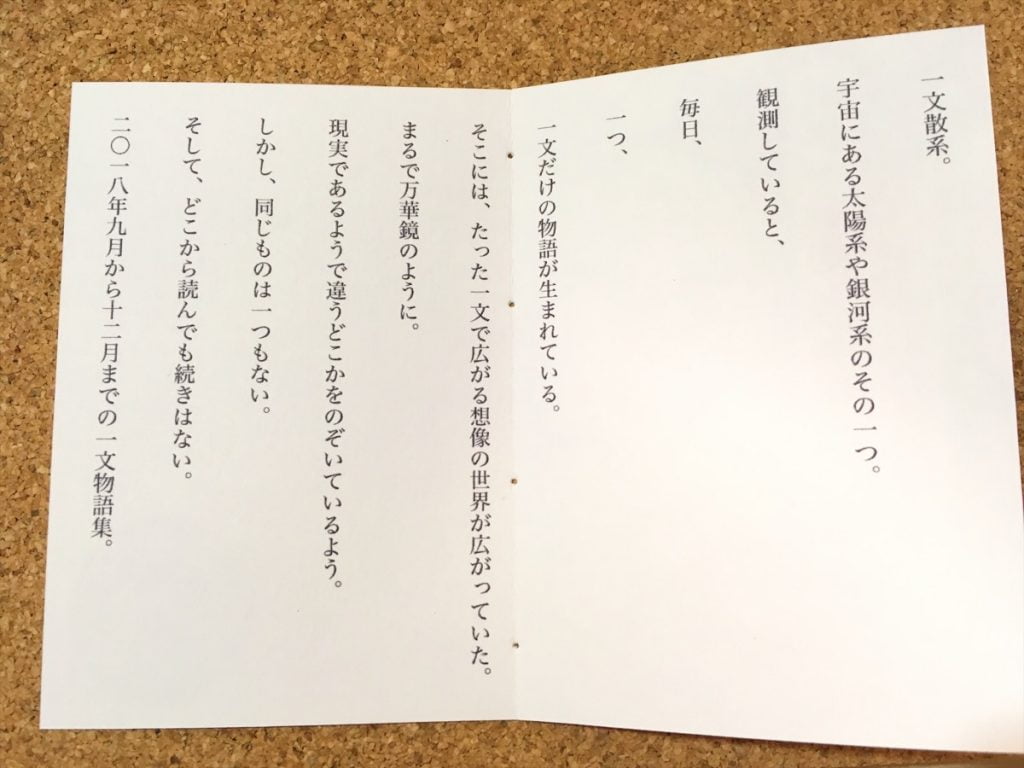 一文散系。
宇宙にある太陽系や銀河系のその一つ。
観測していると、
毎日、
一つ、
一文だけの物語が生まれている。
そこには、たった一文で広がる想像の世界が広がっていた。
まるで万華鏡のように。
現実であるようで違うどこかをのぞいているよう。
しかし、同じものは一つもない。
そして、どこから読んでも続きはない。
二〇一八年九月から十二月までの一文物語集。